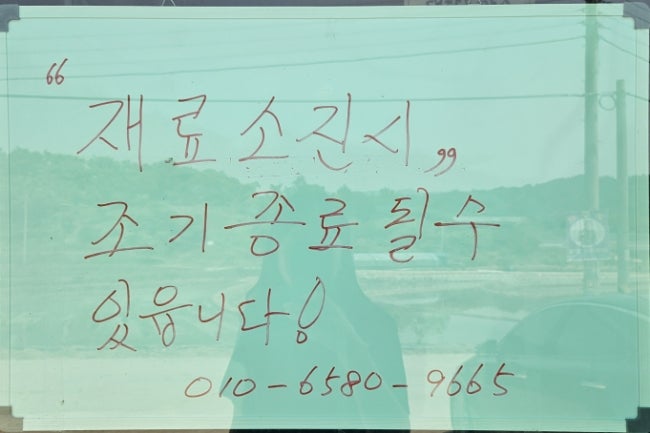 “재료 소진시”
조기종료 될수
있읍니다!
010-6580-9665